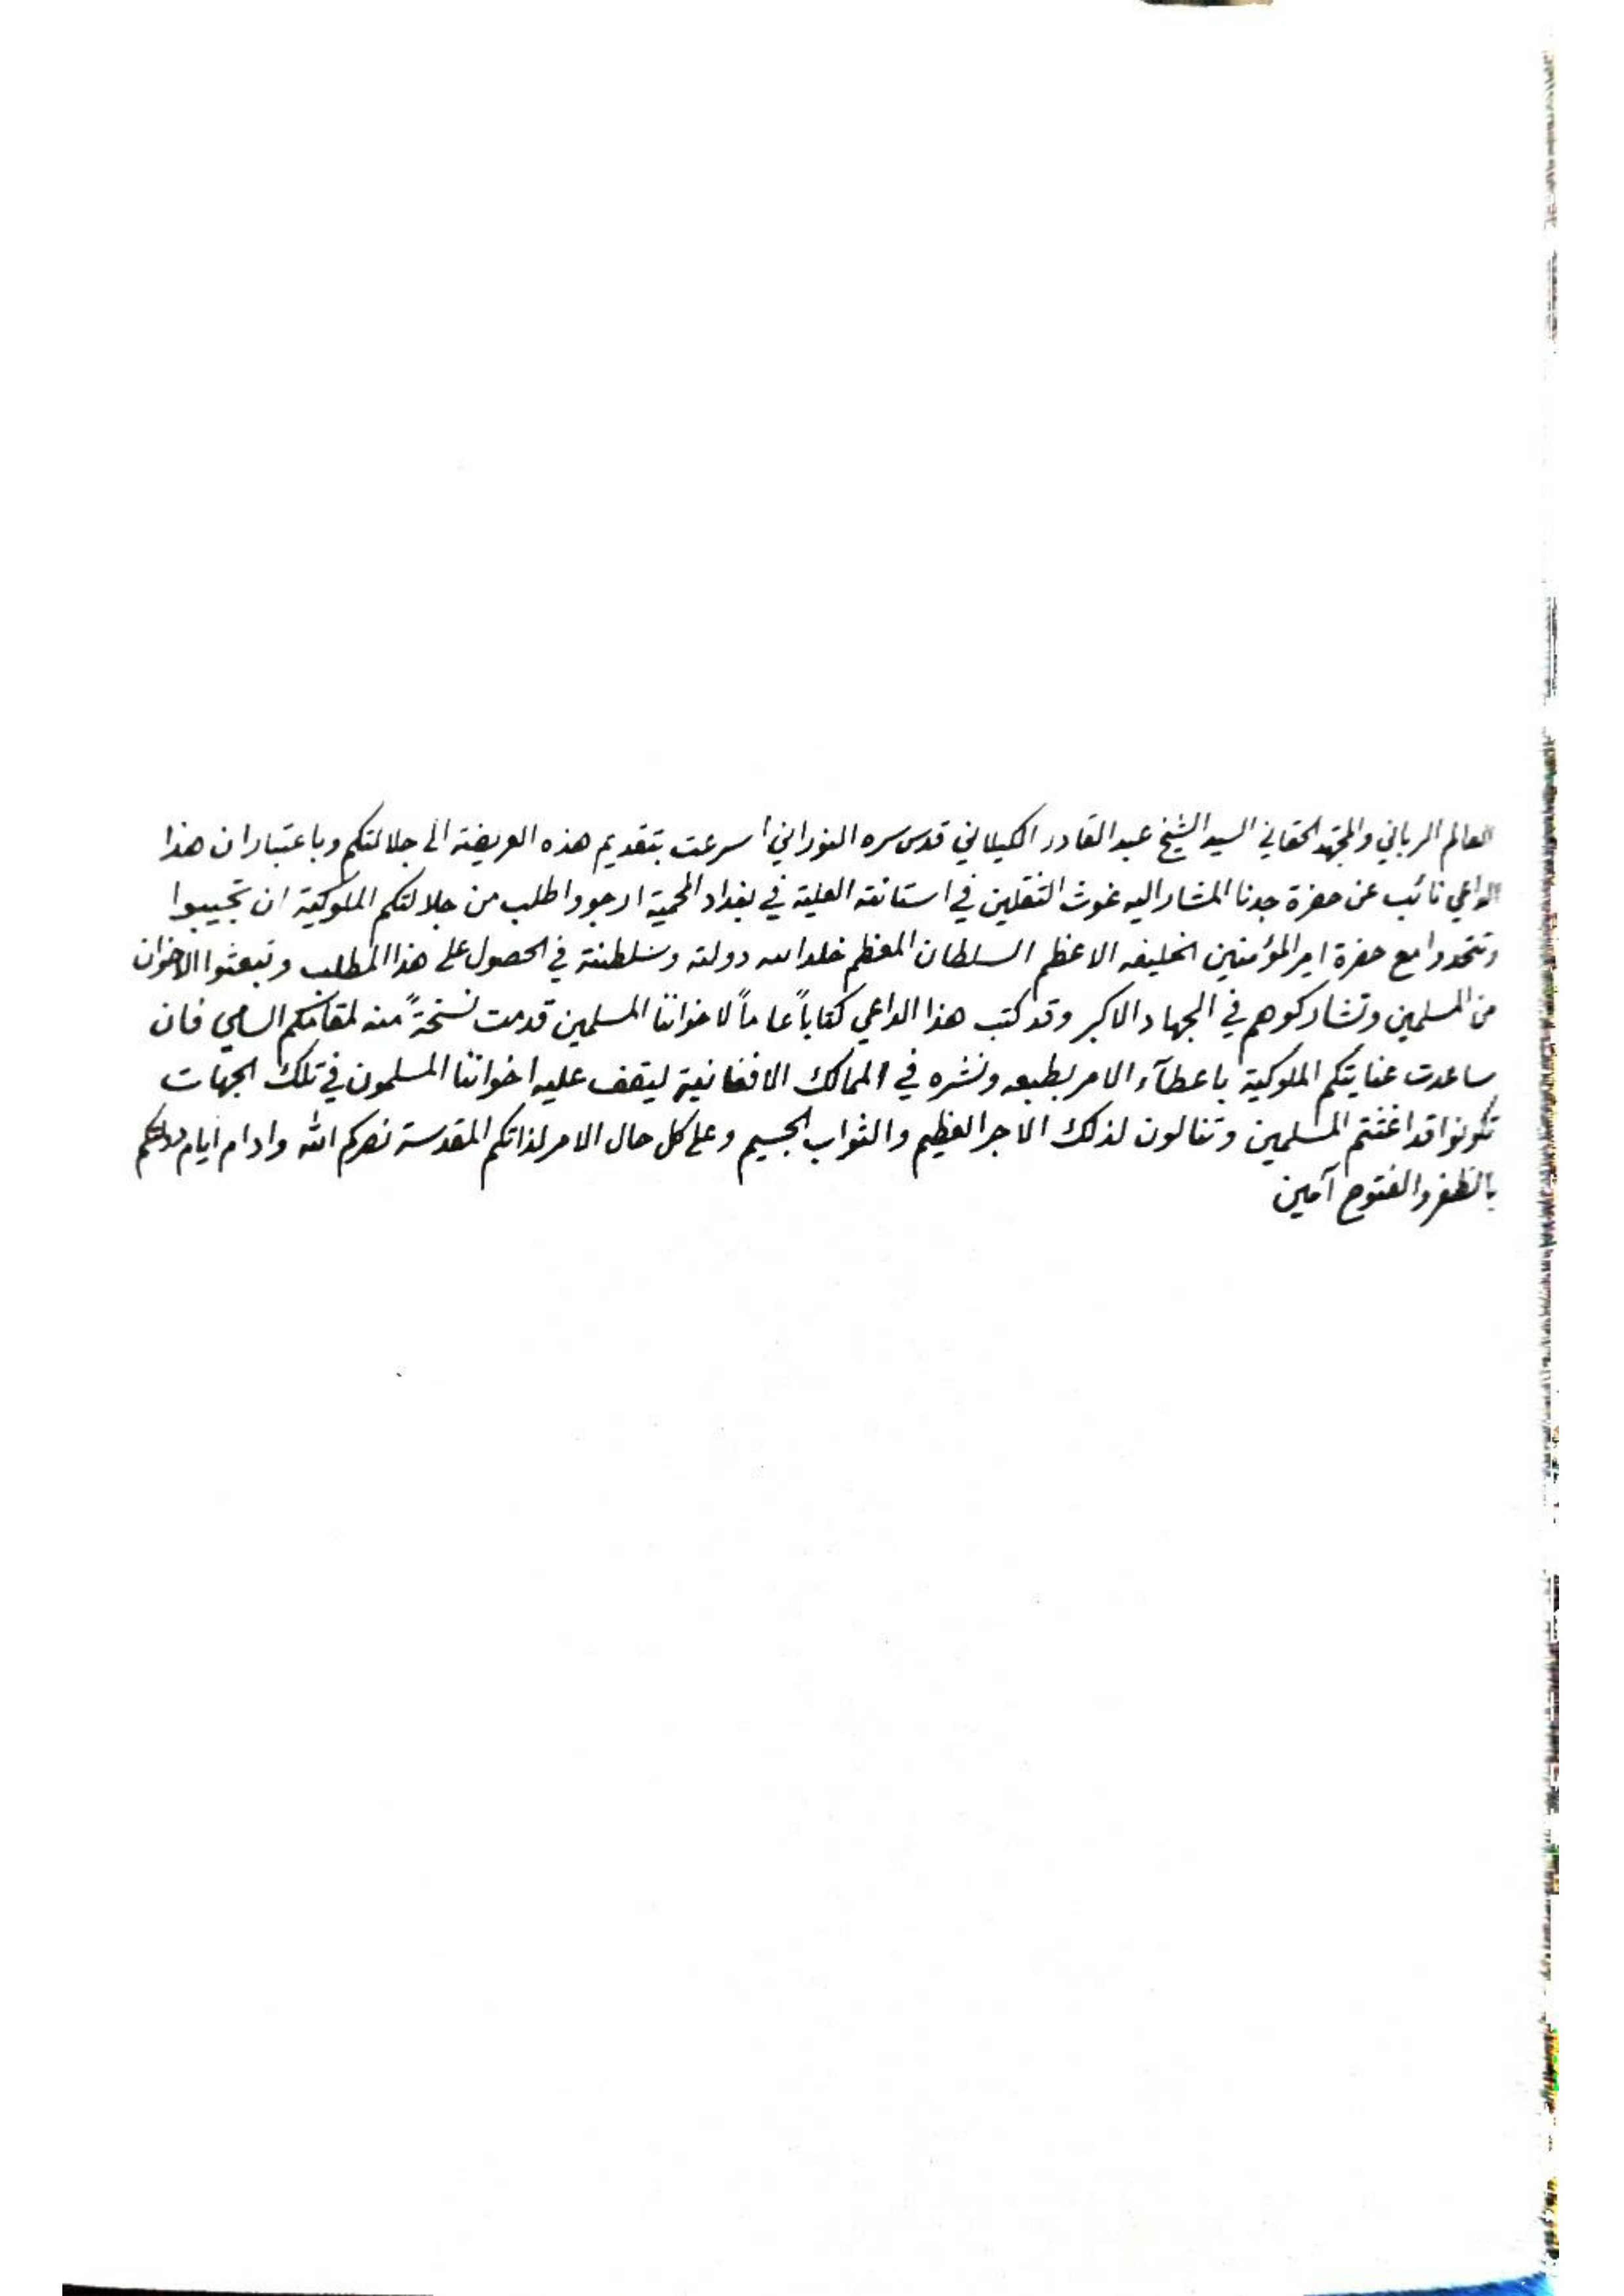 العالم الرباني والمجتهد الحقاني السيد الشيخ عبد القادر الكيلاني قدس سره النوراني اسرعت بتقديم هذه العريضة الى جلالتكم وباعتبار ان هذا
الداعي نائب عن حضرة جدنا المشار اليه غوث الثقلين في استانته العلية في بغداد المحمية ارجو واطلب من جلالتكم الملوكية ان تجيبوا
وتتحدوا مع حضرة امير المؤمنين الخليفه الاعظم السلطان المعظم خلد الله دولته وسلطنته في الحصول على هذا المطلب وتبعثوا الاخوان
من المسلمين وتشاركوهم في الجهاد الاكبر وقد كتب هذا الداعي كتاباً عاماً لاخواننا المسلمين قدمت نسخةً منه لمقامكم السامي فان
ساعدت عنايتكم الملوكية باعطآء الامر بطبعه ونشره في الممالك الافغانية ليقف عليه اخواننا المسلمون في تلك الجهات
تكونوا قد اغثتم المسلمين وتنالون لذلك الاجر العظيم والثواب الجسيم وعلى كل حال الامر لذاتكم المقدسة نصركم الله وادام ايام دولتكم
بالظفر والفتوح آمين